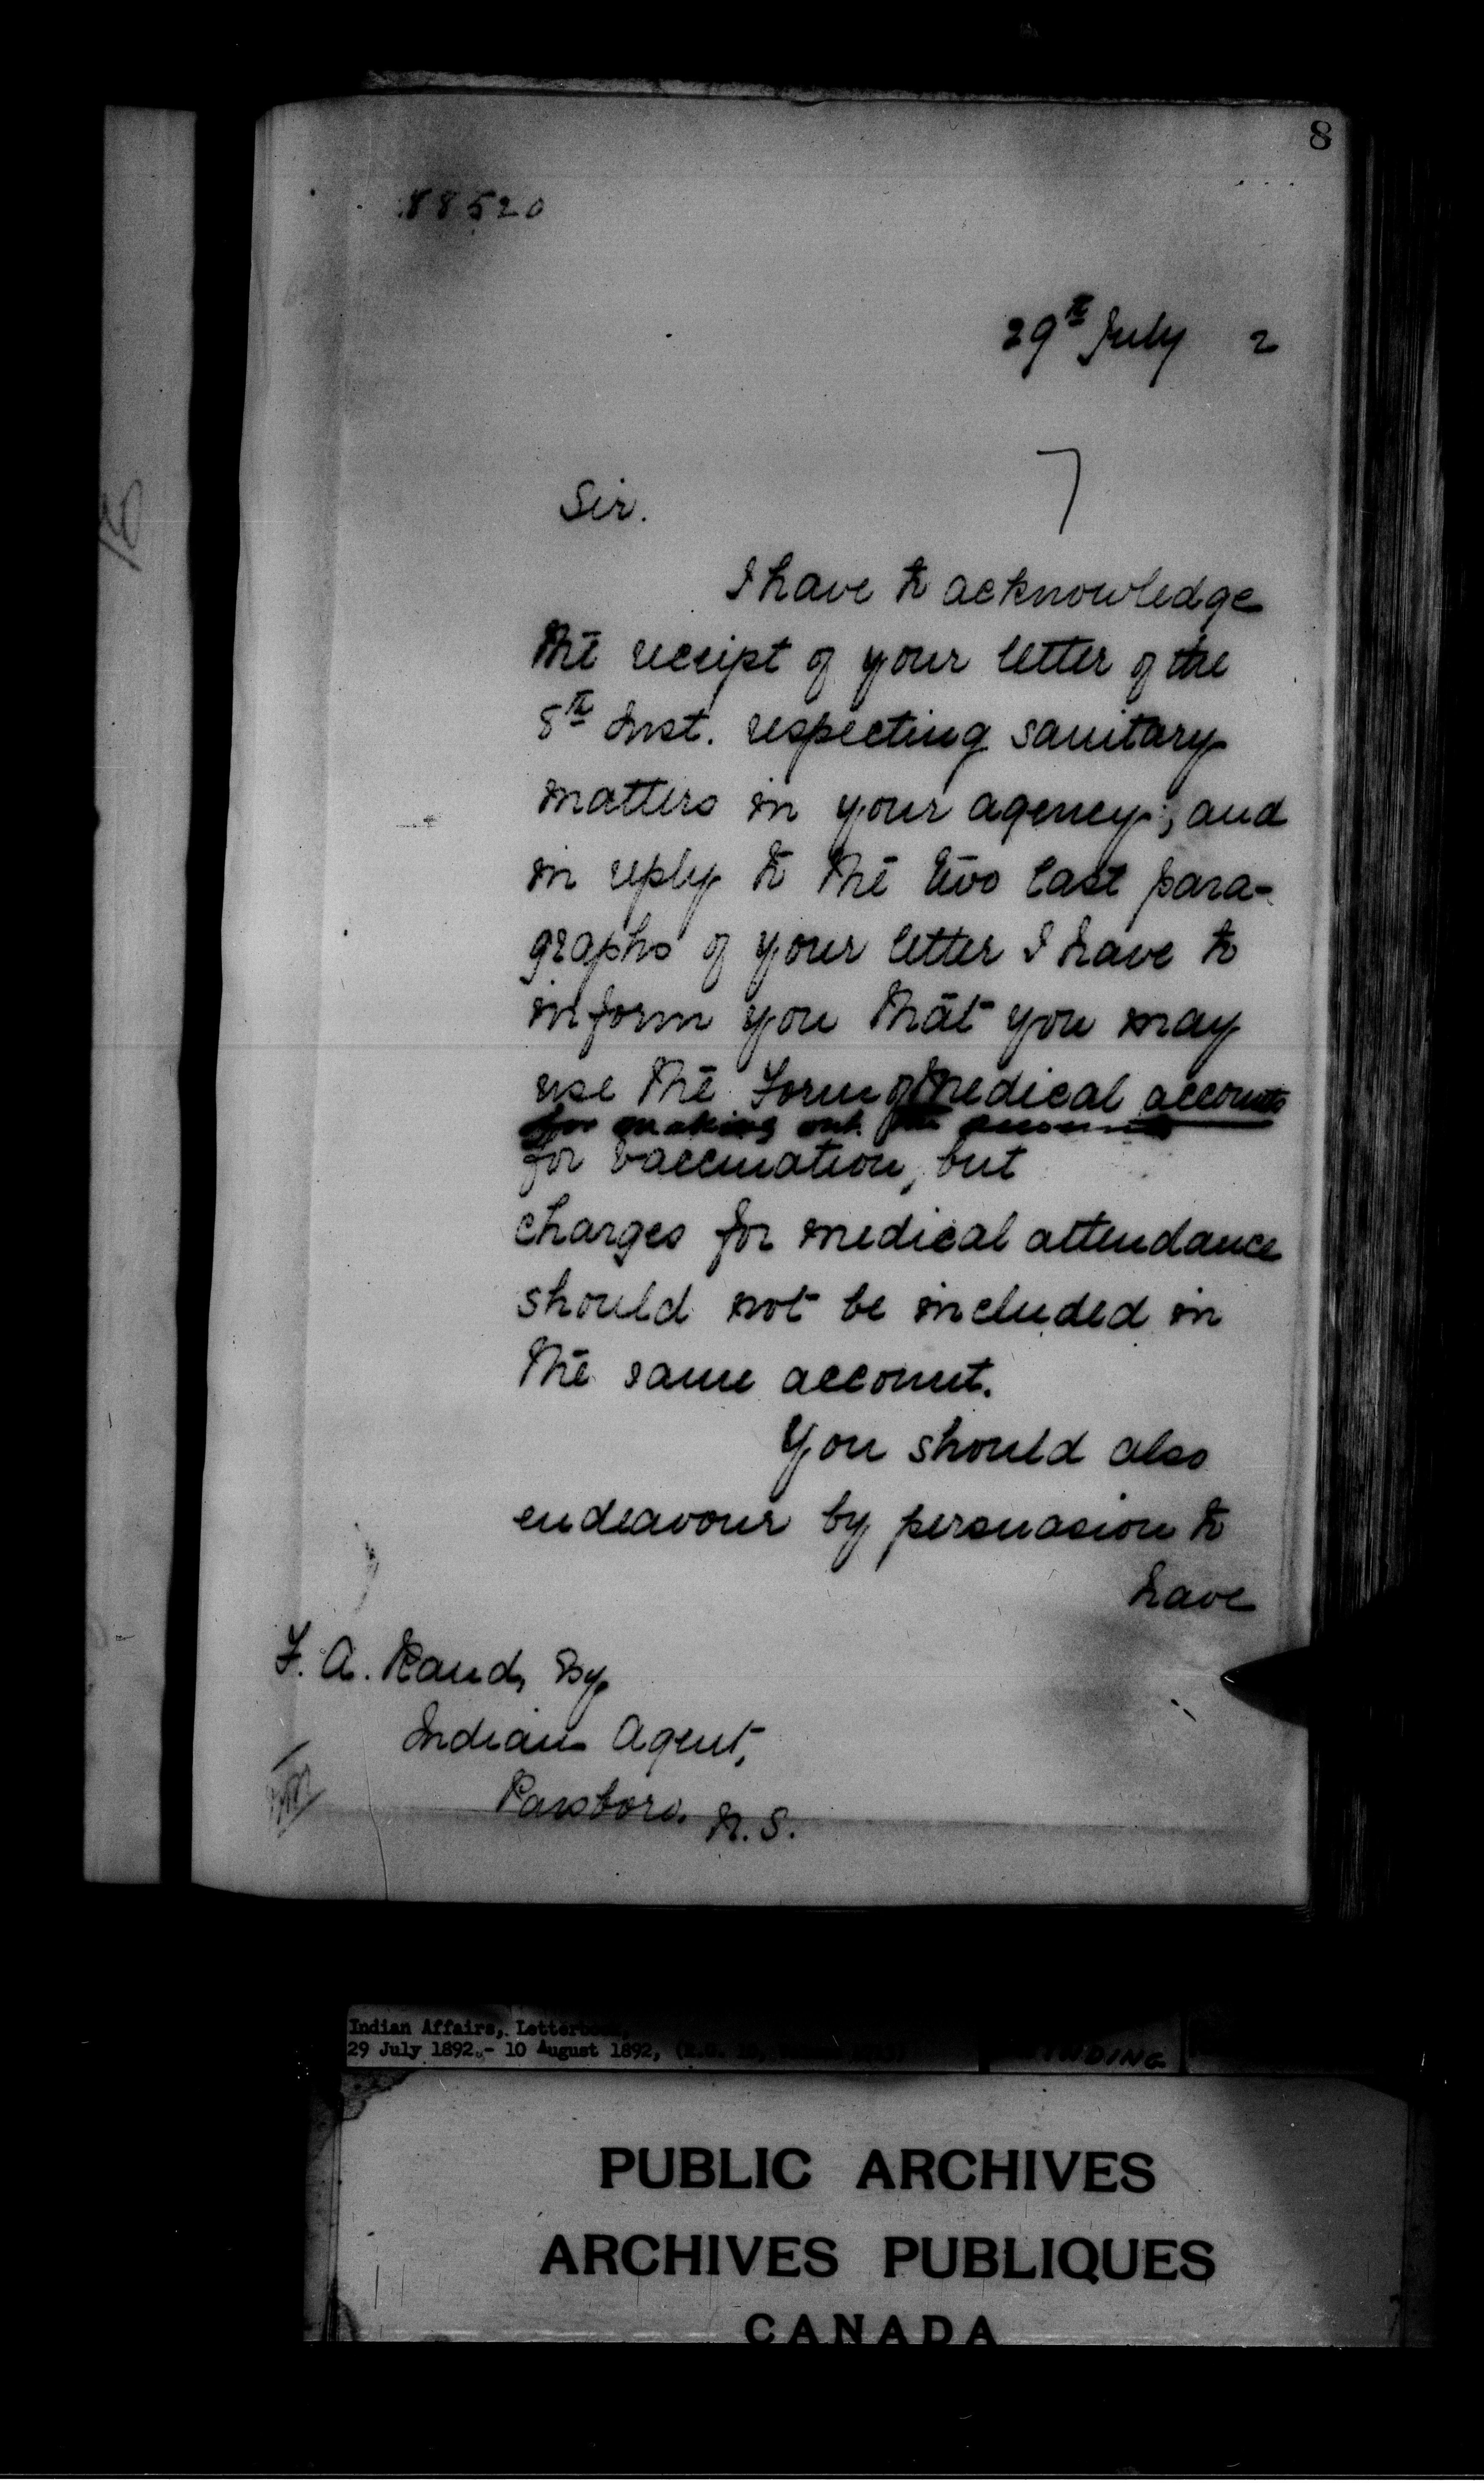 8
88520
29th July 2
Sir.
I have to acknowledge
the receipt of your letter of the
8th Inst. respecting sanitary
matters in your agency; and
in reply to the two last para-
graphs of your letter I have to
inform you that you may
use the Form of medical accounts
for making out the accounts
for vaccination, but
charges for medical attendance
should not be included in
the same account.
You should also
endeavour by persuasion to
have
F. A. Rand, Esq
Indian Agent,
Parsboro, N.S.
Indian Affairs, Letterbook,
29 July 1892 - 10 August 1892,
PUBLIC ARCHIVES
ARCHIVES PUBLIQUES
CANADA